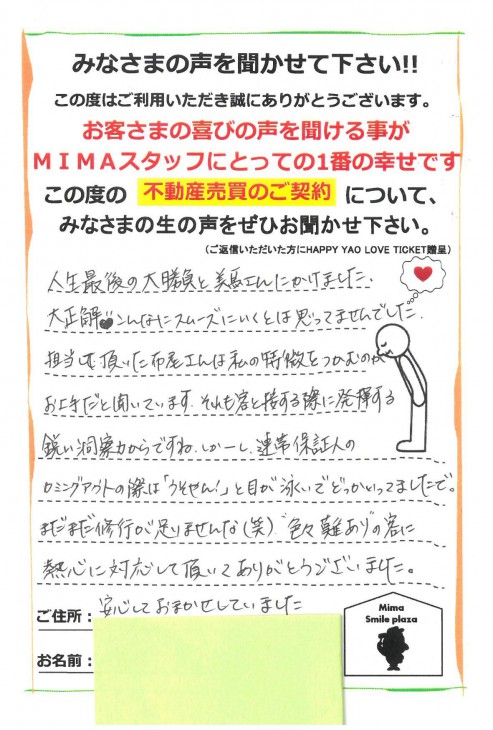 みなさまの声を聞かせて下さい!!
この度はご利用いただき誠にありがとうございます。
お客さまの喜びの声を聞ける事が
MIMAスタッフにとっての1番の幸せです
この度の 不動産売買のご契約 について、
みなさまの生の声をぜひお聞かせ下さい。
(ご返信いただいた方にHAPPY YAO LOVE TICKET贈呈)
人生最後の大勝負と美馬さんにかけました。
大正解 こんなにスムーズにいくとは思ってませんでした。
担当して頂いた布尾さんは私の特徴をつかむのが
お上手だと聞いています。それも客と接する際に発揮する
鋭い洞察力からですね。しかーし、連帯保証人の
カミングアウトの際は「うそやん!」と目が泳いでどっかいってましたで。
まだまだ修行が足りませんな(笑) 色々難ありの客に
熱心に対応して頂いてありがとうございました。
安心しておまかせしていました
ご住所:
お名前:
Mima
Smile plaza